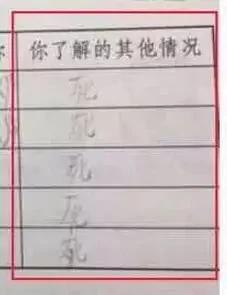 你了解的其他情况
死
死
死
死
死